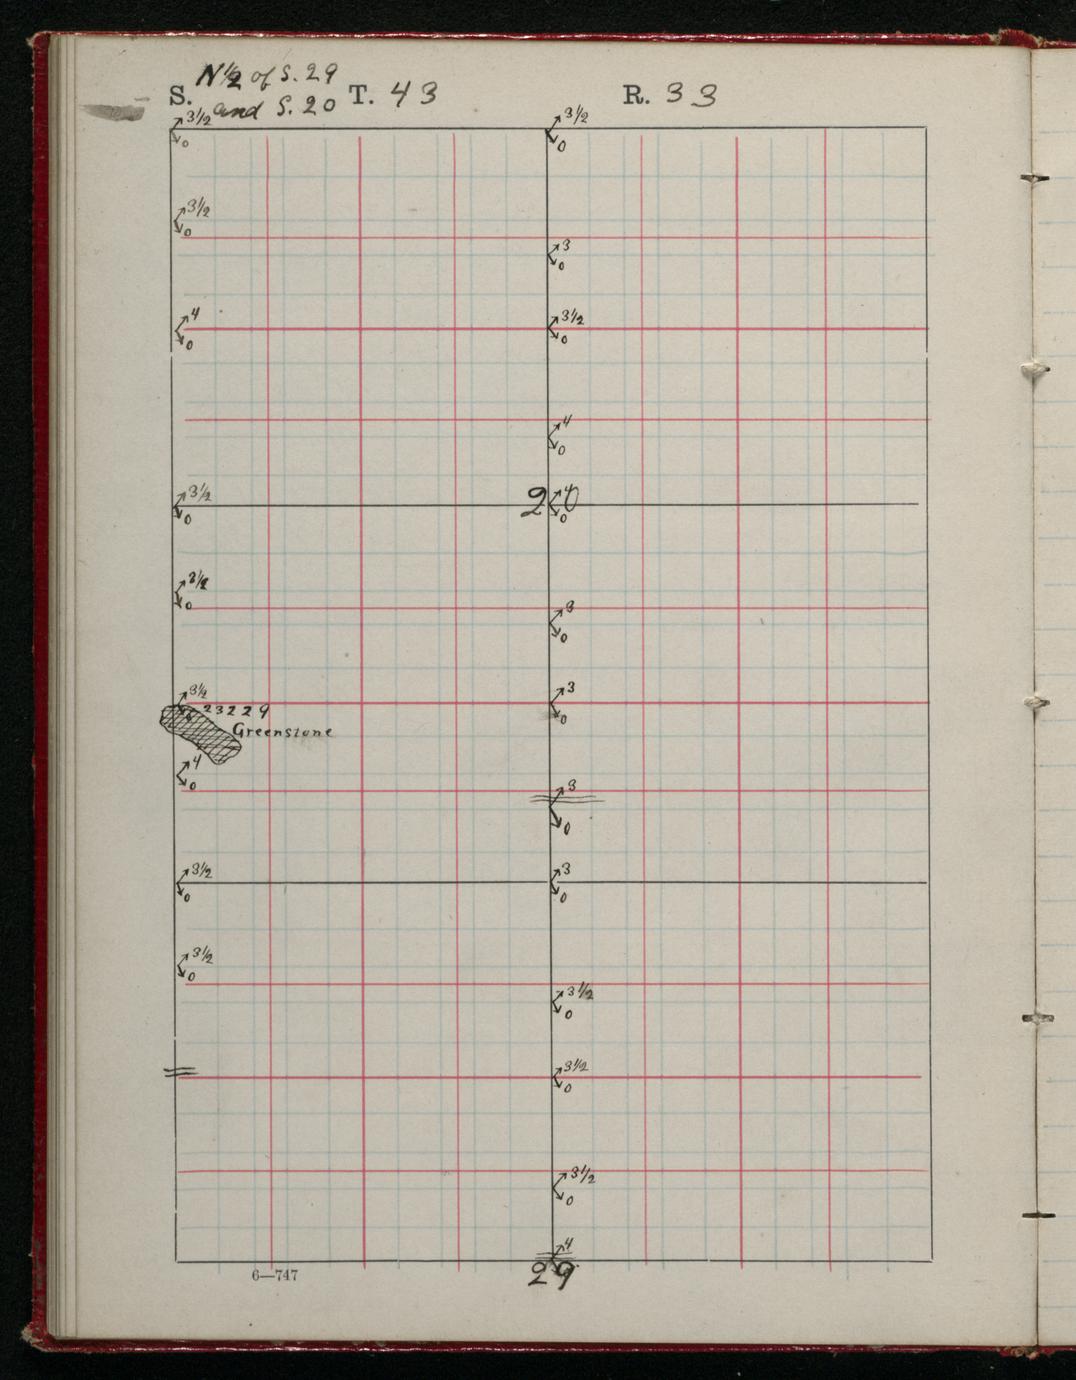 N½ of S. 29
S. and S. 20 T. 43 R. 33
3½ 3½
0 0
3½
0
3
0
4 3½
0 0
4
0
3½ 20 4
0 0
3½
0
3
0
3½ 3
23229 0
Greenstone
4 3
0 0
3½ 3
0 0
3½
0
3½
0
3½
0
3½
0
4
29
6—747